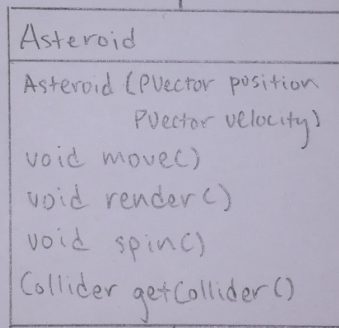 Asteroid
Asteroid (PVector position
PVector velocity)
void move()
void render()
void spin()
Collider getCollider()